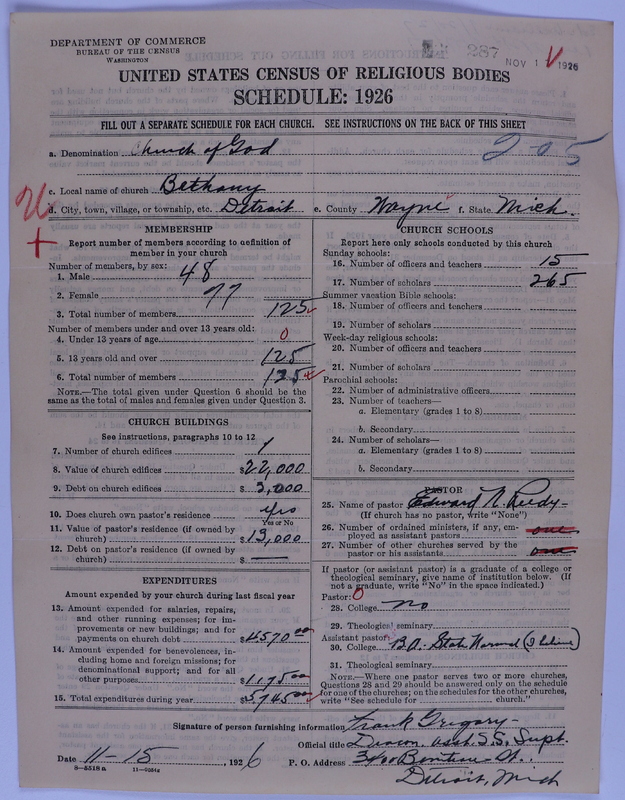 DEPARTMENT OF COMMERCE
BUREAU OF THE CENSUS
WASHINGTON
287
NOV 1 1926
UNITED STATES CENSUS OF RELIGIOUS BODIES
SCHEDULE: 1926
FILL OUT A SEPARATE SCHEDULE FOR EACH CHURCH. SEE INSTRUCTIONS ON THE BACK OF THIS SHEET
a. Denomination Church of God
205
c. Local name of church Bethany
d. City, town, village, or township, etc. Detroit e. County Wayne f. State Mich.
MEMBERSHIP
Report number of members according to definition of
member in your church
Number of members, by sex:
1. Male 48
2. Female 77
3. Total number of members 125
Number of members under and over 13 years old:
4. Under 13 years of age 0
5. 13 years old and over 125
6. Total number of members 125
NOTE.—The total given under Question 6 should be
same as the total of males and females given under Question 3.
CHURCH BUILDINGS
See instructions, paragraphs 10 to 12
7. Number of church edifices 1
8. Value of church edifices $22,000
9. Debt on church edifices $ 3,000
10. Does church own pastor's residence yes
Yes or No
11. Value of pastor's residence (if owned by
church) $13,000
12. Debt on pastor's residence (if owned by
church) $ —
EXPENDITURES
Amount expended by your church during last fiscal year
13. Amount expended for salaries, repairs,
and other running expenses; for im-
provements or new buildings; and for
payments on church debt $4570.00
14. Amount expended for benevolences, in-
cluding home and foreign missions; for
denominational support; and for all
other purposes $1175.00
15. Total expenditures during year $5745.00
CHURCH SCHOOLS
Report here only schools conducted by this church
Sunday schools:
16. Number of officers and teachers 15
17. Number of scholars 265
Summer vacation Bible schools:
18. Number of officers and teachers
19. Number of scholars
Week-day religious schools:
20. Number of officers and teachers
21. Number of scholars
Parochial schools:
22. Number of administrative officers
23. Number of teachers—
a. Elementary (grades 1 to 8)
b. Secondary
24. Number of scholars—
a. Elementary (grades 1 to 8)
b. Secondary
PASTOR
25. Name of pastor Edward N. Reedy
(If church has no pastor, write "None")
26. Number of ordained ministers, if any, em-
ployed as assistant pastors one
27. Number of other churches served by the
pastor or his assistants one
If pastor (or assistant pastor) is a graduate of a college or
theological seminary, give name of institution below. (If
not a graduate, write "No" in the space indicated.)
Pastor: 0
28. College no
29. Theological seminary
Assistant pastor:
30. College B.A. State Normal
31. Theological seminary
NOTE.—Where one pastor serves two or more churches,
Questions 28 and 29 should be answered only on the schedule
for one of the churches; on the schedules for the other churches,
write "See schedule for church."
Signature of person furnishing information Frank Gregory
Official title Deacon, Asst. S.S. Supt.
Date 11-15, 1926 P. O. Address St.
8—5518a 11—9084
Detroit, Mich